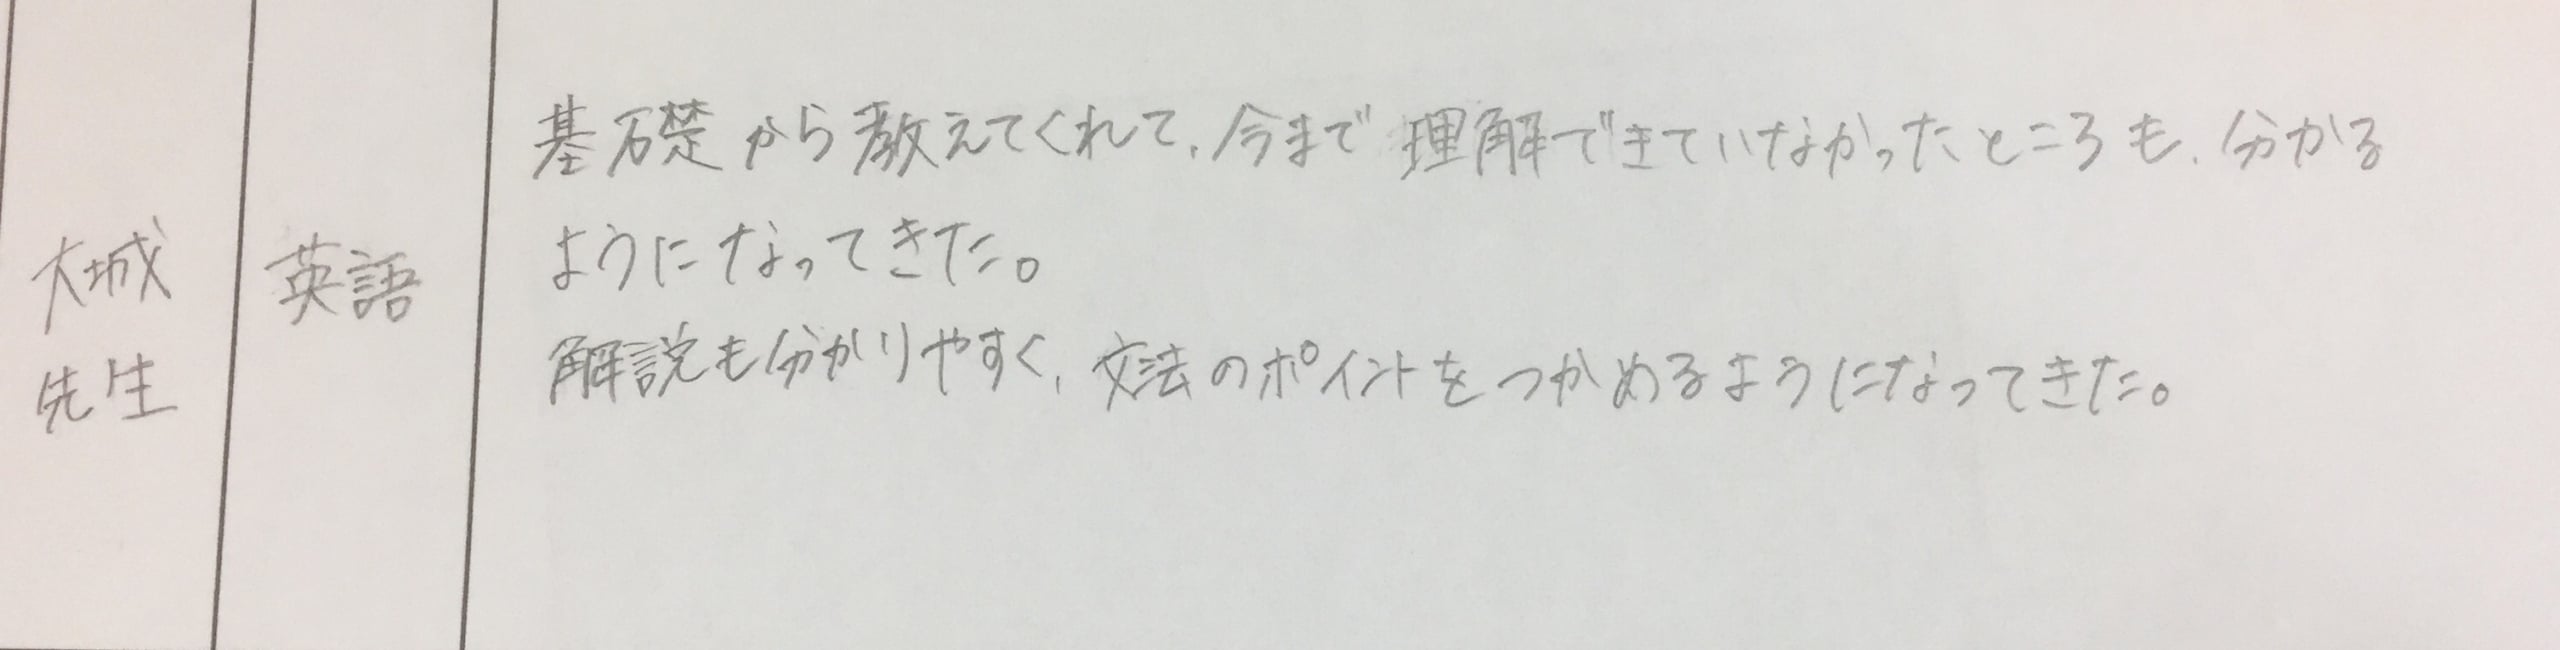 大城
先生
英語
基礎から教えてくれて、今まで理解できていなかったところも、分かる
ようになってきた。
解説も分かりやすく、文法のポイントをつかめるようになってきた。